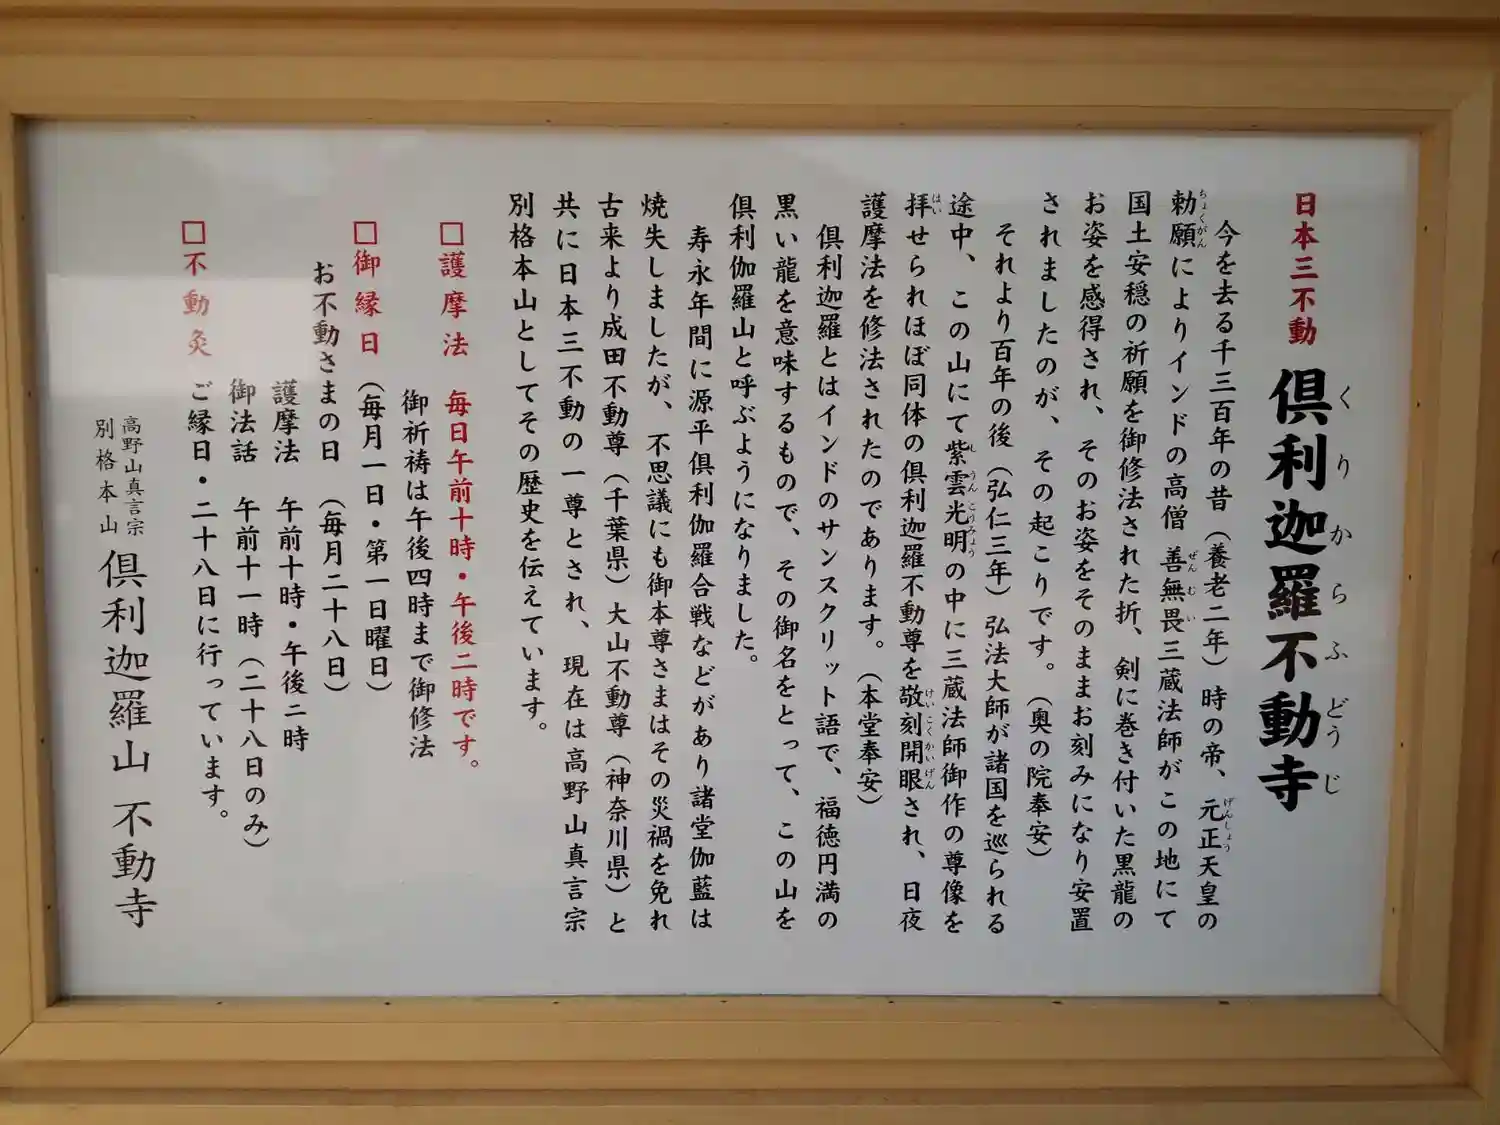 日本三不動 倶利迦羅不動寺
くりからふどうじ
今を去る千三百年の昔（養老二年）時の帝、元正天皇の
げんしょう
勅願によりインドの高僧 善無畏三蔵法師がこの地にて
ちょくがん ぜんむい
国土安穏の祈願を御修法された折、剣に巻き付いた黒龍の
お姿を感得され、そのお姿をそのままお刻みになり安置
されましたのが、その起こりです。（奥の院奉安）
それより百年の後（弘仁三年）弘法大師が諸国を巡られる
途中、この山にて紫雲光明の中に三蔵法師御作の尊像を
しうんこうみょう
拝せられほぼ同体の倶利迦羅不動尊を敬刻開眼され、日夜
はい けいこくかいげん
護摩法を修法されたのであります。（本堂奉安）
倶利迦羅とはインドのサンスクリット語で、福徳円満の
黒い龍を意味するもので、その御名をとって、この山を
倶利伽羅山と呼ぶようになりました。
寿永年間に源平倶利伽羅合戦などがあり諸堂伽藍は
焼失しましたが、不思議にも御本尊さまはその災禍を免れ
古来より成田不動尊（千葉県）大山不動尊（神奈川県）と
共に日本三不動の一尊とされ、現在は高野山真言宗
別格本山としてその歴史を伝えています。
□護摩法 毎日午前十時・午後二時です。
御祈祷は午後四時まで御修法
□御縁日（毎月一日・第一日曜日）
お不動さまの日（毎月二十八日）
護摩法 午前十時・午後二時
御法話 午前十一時（二十八日のみ）
□不動灸 ご縁日・二十八日に行っています。
高野山真言宗
別格本山 倶利迦羅山 不動寺